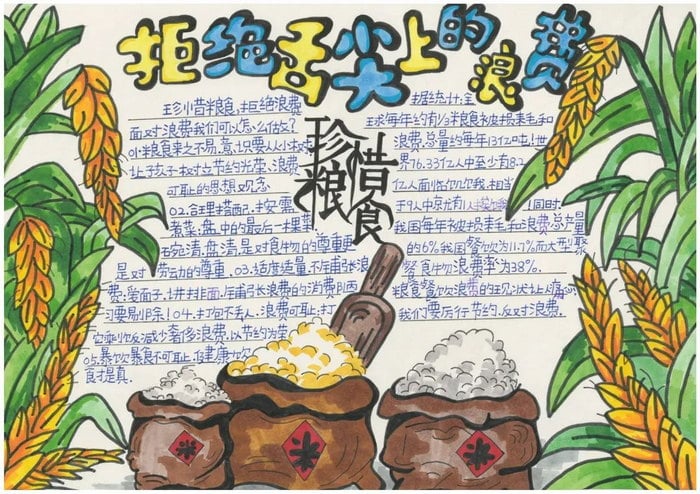 拒绝舌尖上的浪费
珍惜粮食,拒绝浪费
面对浪费我们可以怎么做?
01粮食来之不易,意识要从小树
让孩子树立节约光荣、浪费
可耻的思想观念
02.合理搭配,按需
煮菜.盘中的最后一棵菜
碗清,盘清,是对食物的尊重更
是对劳动力的尊重.03.适度适量,不铺张浪
费.爱面子.讲排面.铺张浪费的消费陋
习要剔除!04.打包不丢人、浪费可耻:打
减少奢侈浪费.以节约为荣
05.暴饮暴食不可取.健康饮
食才是真.
珍惜
粮食
据统计:全
球每年约有1/3粮食被损耗和
浪费.总量约每年13亿吨!世
界76.33亿人中至少有8.2
亿人面临饥饿.相当
于9人中就有1人
我国每年被损耗和浪费总产量
的6%我国餐饮为11.7%而大型聚
餐食物浪费率为38%.
粮食餐饮浪费的现状让
我们要厉行节约.反对浪费.
米
米
米